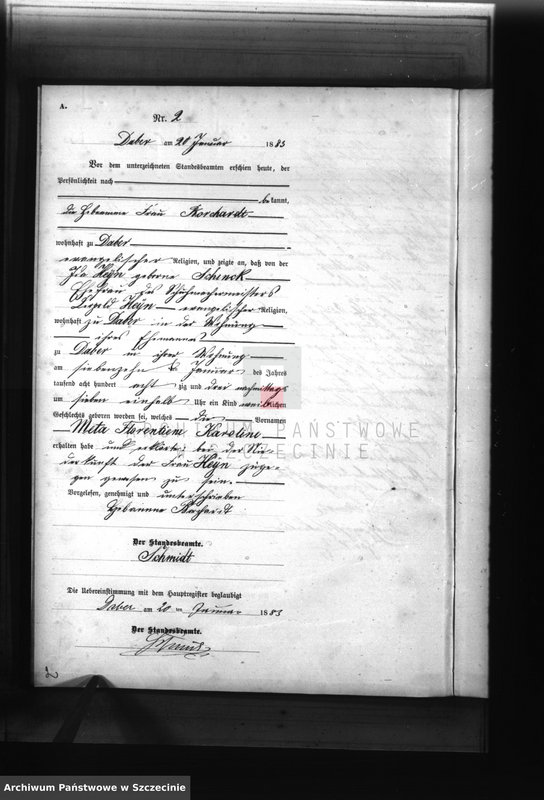 A.
Nr. 2
Daber am 20 Januar 1883
Vor dem unterzeichneten Standesbeamten erschien heute, der
Persönlichkeit nach
bekannt,
die Hebeamme Frau Borchardt
wohnhaft zu Daber
evangelischer Religion, und zeigte an, daß von der
Ida Heyn geborne Schenck
Ehefrau des Schuhmachermeisters
Leopold Heyn evangelischer Religion,
wohnhaft zu Daber in der Wohnung
ihres Ehemannes
zu Daber in ihrer Wohnung
am siebenzehn Januar des Jahres
tausend acht hundert acht zig und drei nachmittags
um sieben einhalb Uhr ein Kind weiblichen
Geschlechts geboren worden sei, welches die Vornamen
Meta Florentine Karoline
erhalten habe und erklärte: bei der Nie-
derkunft der Frau Heyn zuge-
gen gewesen zu sein.
Vorgelesen, genehmigt und unterschrieben
Hebamme
Der Standesbeamte.
Schmidt
Die Uebereinstimmung mit dem Hauptregister beglaubigt
Daber am 20 ten Januar 1883
Der Standesbeamte.
2
ARCHIWUM PAŃSTWOWE
W SZCZECINIE
Archiwum Państwowe w Szczecinie